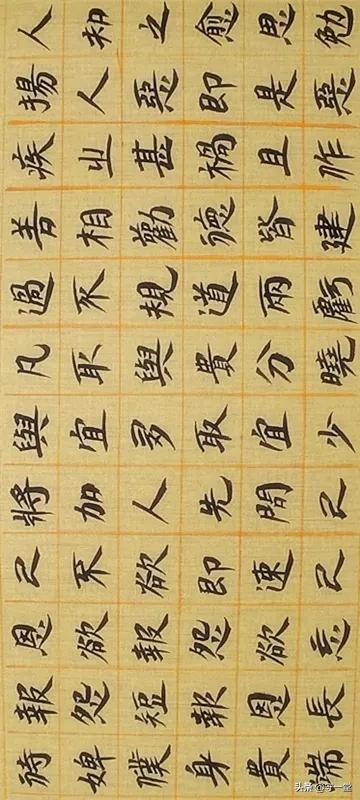 人知之愈思勉
揚人惡即是惡
疾之甚禍且作
善相勸德皆建
過不規道兩虧
凡取與貴分曉
與宜多取宜少
將加人先問己
己不欲即速己
恩欲報怨欲忘
報怨短報恩長
待婢僕身貴端
头条 @守一堂